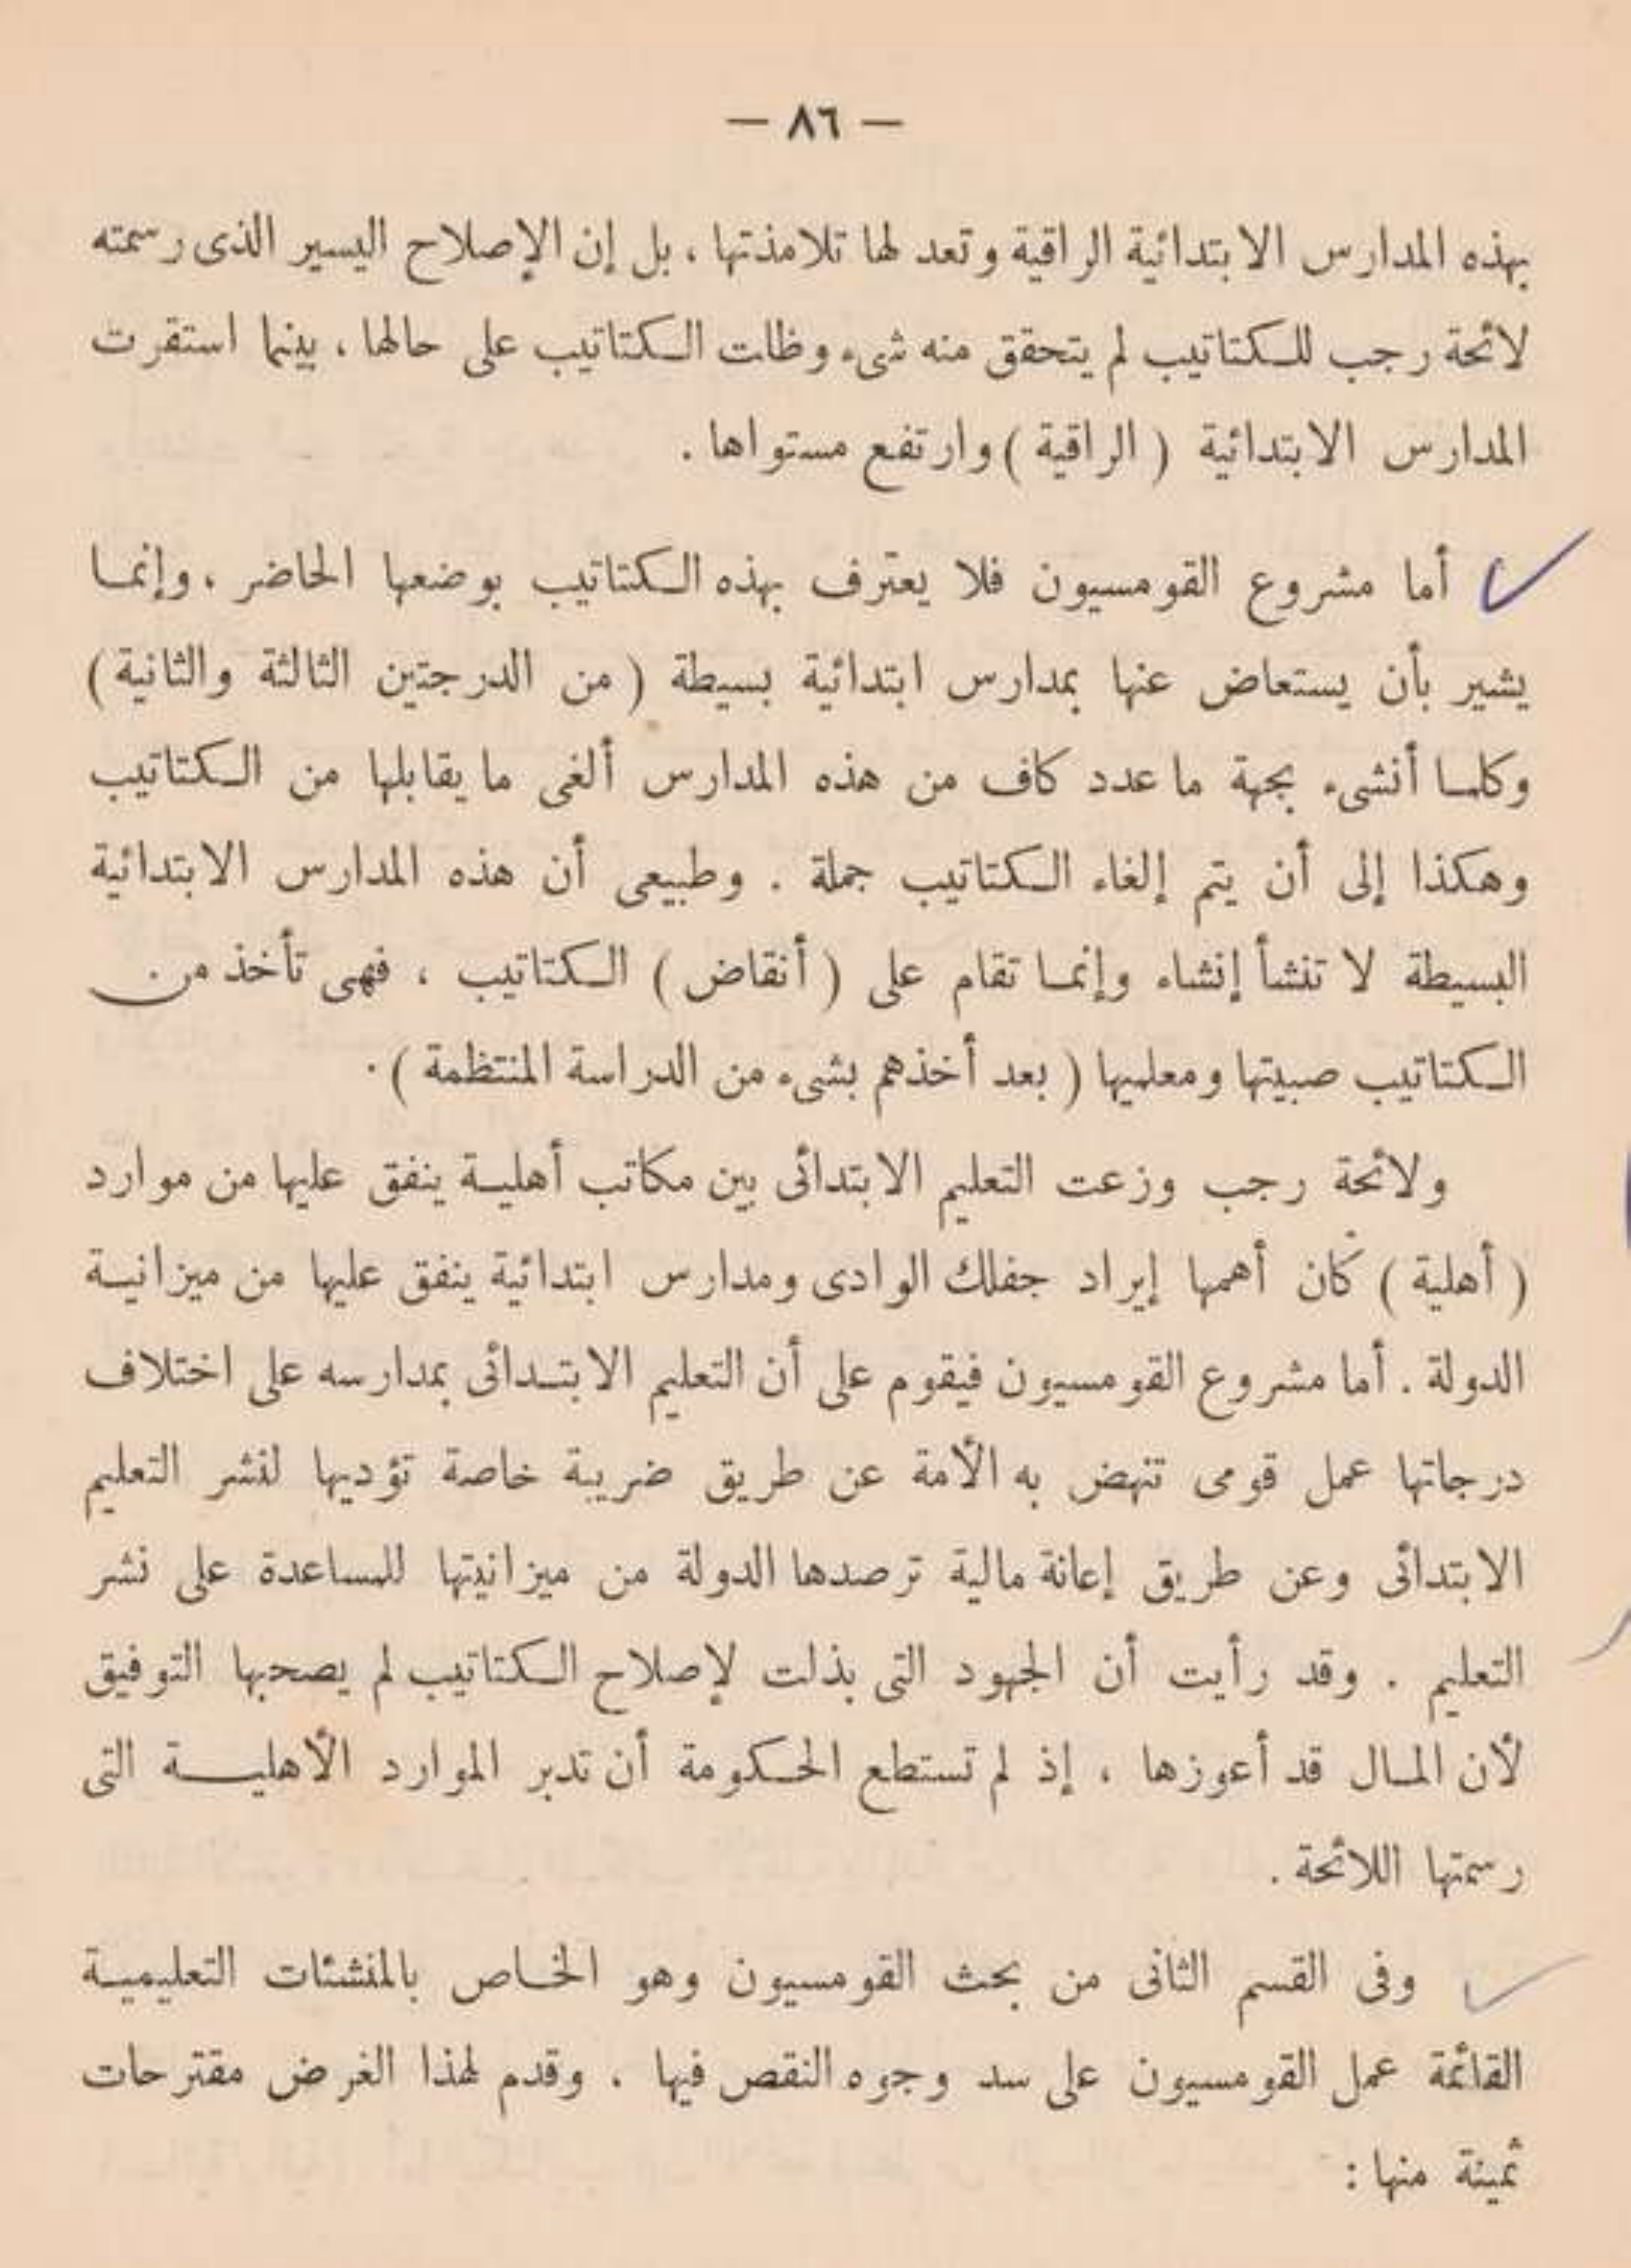 — ٨٦ —
بهذه المدارس الابتدائية الراقية وتعد لها تلامذتها ، بل إن الإصلاح اليسير الذى رسمته
لائحة رجب للكتاتيب لم يتحقق منه شىء وظلت الكتاتيب على حالها ، بينما استقرت
المدارس الابتدائية ( الراقية ) وارتفع مستواها .
أما مشروع القومسيون فلا يعترف بهذه الكتاتيب بوضعها الحاضر ، وإنما
يشير بأن يستعاض عنها بمدارس ابتدائية بسيطة ( من الدرجتين الثالثة والثانية )
وكلما أنشىء بجهة ما عدد كاف من هذه المدارس ألغى ما يقابلها من الكتاتيب
وهكذا إلى أن يتم إلغاء الكتاتيب جملة . وطبيعى أن هذه المدارس الابتدائية
البسيطة لا تنشأ إنشاء وإنما تقام على ( أنقاض ) الكتاتيب ، فهى تأخذ من
الكتاتيب صبيتها ومعلميها ( بعد أخذهم بشىء من الدراسة المنتظمة ) .
ولائحة رجب وزعت التعليم الابتدائى بين مكاتب أهلية ينفق عليها من موارد
( أهلية ) كان أهمها إيراد جفلك الوادى ومدارس ابتدائية ينفق عليها من ميزانية
الدولة . أما مشروع القومسيون فيقوم على أن التعليم الابتدائى بمدارسه على اختلاف
درجاتها عمل قومى تنهض به الأمة عن طريق ضريبة خاصة تؤديها لنشر التعليم
الابتدائى وعن طريق إعانة مالية ترصدها الدولة من ميزانيتها للمساعدة على نشر
التعليم . وقد رأيت أن الجهود التى بذلت لإصلاح الكتاتيب لم يصحبها التوفيق
لأن المال قد أعوزها ، إذ لم تستطع الحكومة أن تدبر الموارد الأهلية التى
رسمتها اللائحة .
وفى القسم الثانى من بحث القومسيون وهو الخاص بالمنشئات التعليمية
القائمة عمل القومسيون على سد وجوه النقص فيها . وقدم لهذا الغرض مقترحات
ثمينة منها :